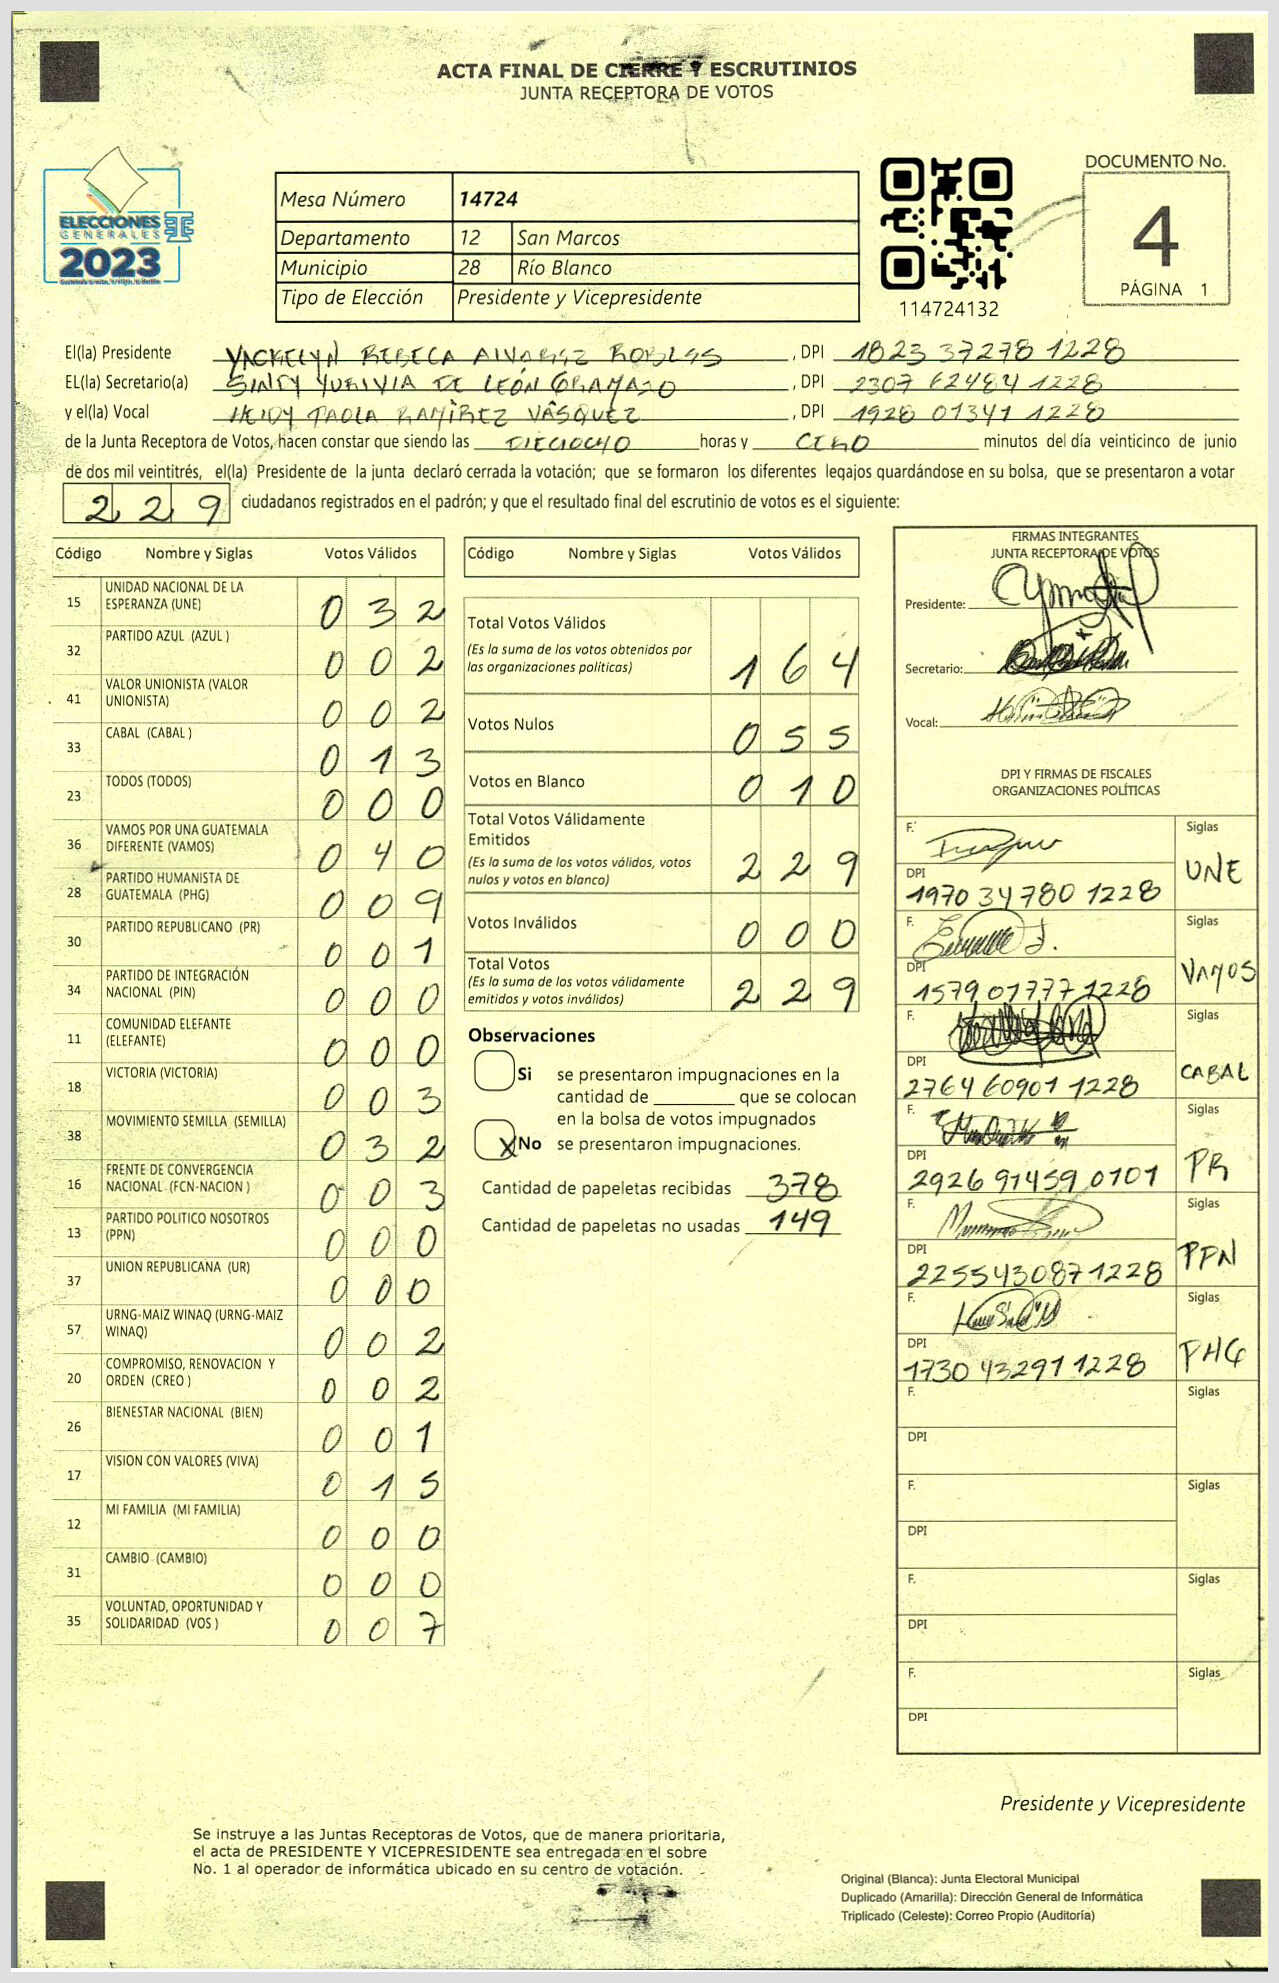 ACTA FINAL DE CIERRE Y ESCRUTINIOS
JUNTA RECEPTORA DE VOTOS
ELECCIONES
GENERALES
2023
Mesa Número 14724
Departamento 12 San Marcos
Municipio 28 Río Blanco
Tipo de Elección Presidente y Vicepresidente
114724132
DOCUMENTO No.
4
PÁGINA 1
El(la) Presidente YACKELYN REBECA ALVAREZ ROBLES , DPI 1823 37278 1228
EL(la) Secretario(a) SINDY YURIVIA DE LEÓN , DPI 2307 62484 1228
y el(la) Vocal HEIDY PAOLA RAMÍREZ VÁSQUEZ , DPI 1928 01341 1228
de la Junta Receptora de Votos, hacen constar que siendo las DIECIOCHO horas y CERO minutos del día veinticinco de junio
de dos mil veintitrés, el(la) Presidente de la junta declaró cerrada la votación; que se formaron los diferentes legajos quardándose en su bolsa, que se presentaron a votar
229 ciudadanos registrados en el padrón; y que el resultado final del escrutinio de votos es el siguiente:
Código Nombre y Siglas Votos Válidos
15 UNIDAD NACIONAL DE LA ESPERANZA (UNE) 032
32 PARTIDO AZUL (AZUL ) 002
41 VALOR UNIONISTA (VALOR UNIONISTA) 002
33 CABAL (CABAL ) 013
23 TODOS (TODOS) 000
36 VAMOS POR UNA GUATEMALA DIFERENTE (VAMOS) 040
28 PARTIDO HUMANISTA DE GUATEMALA (PHG) 009
30 PARTIDO REPUBLICANO (PR) 001
34 PARTIDO DE INTEGRACIÓN NACIONAL (PIN) 000
11 COMUNIDAD ELEFANTE (ELEFANTE) 000
18 VICTORIA (VICTORIA) 003
38 MOVIMIENTO SEMILLA (SEMILLA) 032
16 FRENTE DE CONVERGENCIA NACIONAL (FCN-NACION ) 003
13 PARTIDO POLITICO NOSOTROS (PPN) 000
37 UNION REPUBLICANA (UR) 000
57 URNG-MAIZ WINAQ (URNG-MAIZ WINAQ) 002
20 COMPROMISO, RENOVACION Y ORDEN (CREO ) 002
26 BIENESTAR NACIONAL (BIEN) 001
17 VISION CON VALORES (VIVA) 015
12 MI FAMILIA (MI FAMILIA) 000
31 CAMBIO (CAMBIO) 000
35 VOLUNTAD, OPORTUNIDAD Y SOLIDARIDAD (VOS ) 007
Código Nombre y Siglas Votos Válidos
Total Votos Válidos
(Es la suma de los votos obtenidos por
las organizaciones políticas) 164
Votos Nulos 055
Votos en Blanco 010
Total Votos Válidamente
Emitidos
(Es la suma de los votos válidos, votos
nulos y votos en blanco) 229
Votos Inválidos 000
Total Votos
(Es la suma de los votos válidamente
emitidos y votos inválidos) 229
Observaciones
Si se presentaron impugnaciones en la
cantidad de ________ que se colocan
en la bolsa de votos impugnados
X No se presentaron impugnaciones.
Cantidad de papeletas recibidas 378
Cantidad de papeletas no usadas 149
FIRMAS INTEGRANTES
JUNTA RECEPTORA DE VOTOS
Presidente:
Secretario:
Vocal:
DPI Y FIRMAS DE FISCALES
ORGANIZACIONES POLÍTICAS
F. Siglas
DPI 1970 34780 1228 UNE
F. Siglas
DPI 1579 01777 1228 VAMOS
F. Siglas
DPI 2764 60901 1228 CABAL
F. Siglas
DPI 2926 91459 0101 PR
F. Siglas
DPI 2255 43087 1228 PPN
F. Siglas
DPI 1730 43291 1228 PHG
F. Siglas
DPI
F. Siglas
DPI
F. Siglas
DPI
F. Siglas
DPI
Presidente y Vicepresidente
Se instruye a las Juntas Receptoras de Votos, que de manera prioritaria,
el acta de PRESIDENTE Y VICEPRESIDENTE sea entregada en el sobre
No. 1 al operador de informática ubicado en su centro de votación.
Original (Blanca): Junta Electoral Municipal
Duplicado (Amarilla): Dirección General de Informática
Triplicado (Celeste): Correo Propio (Auditoría)